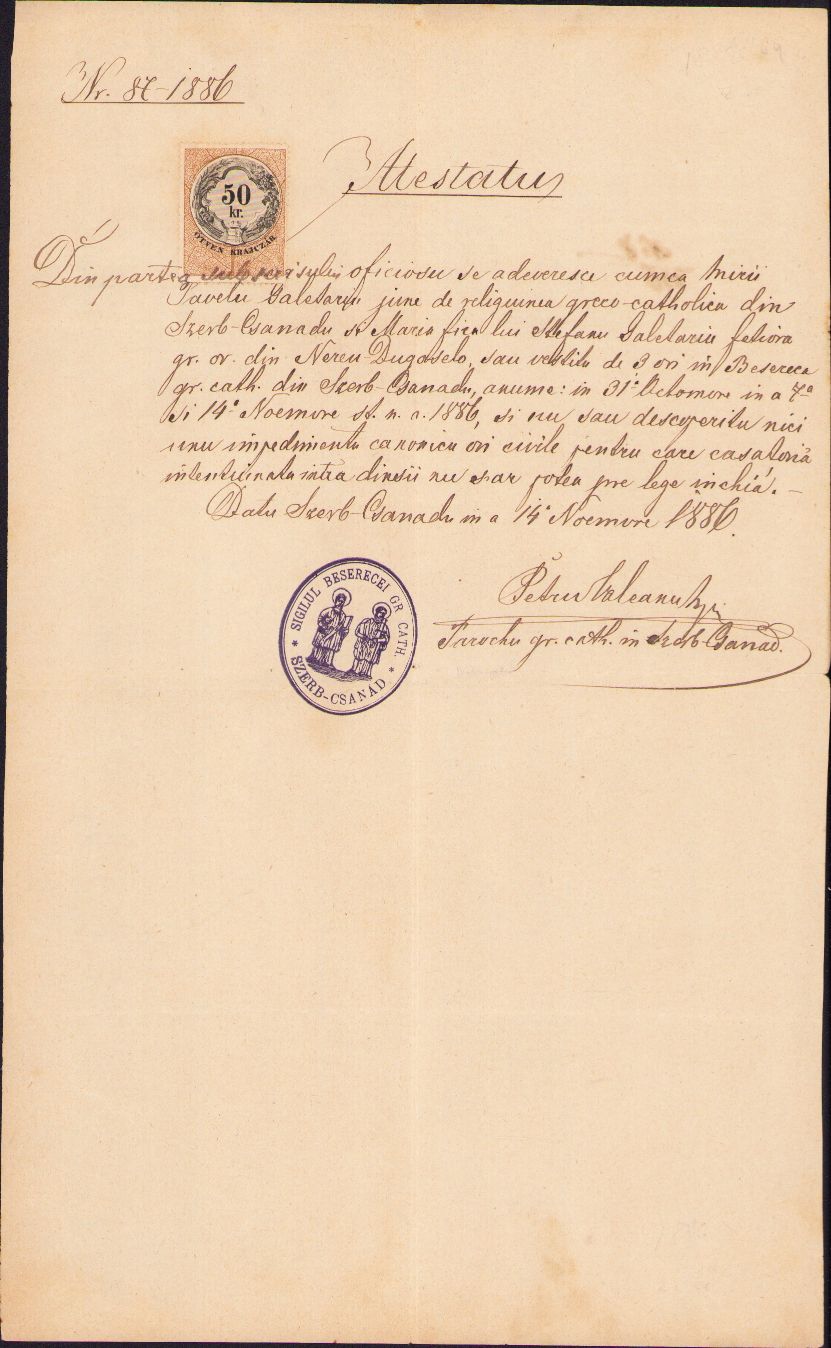 Nr. 87-1886
Atestatu
50
kr.
ÖTVEN KRAJCZÁR
Din partea subscrisului oficiosu se adeveresce cumca mirii
Pavelu Galetariu june de religiunea greco-catholica din
Szerb-Csanadu si Maria fica lui Stefanu Galetariu fetiora
gr. or. din Nereu-Dugoselo, sau vestitu de 3 ori in Besereca
gr. cath. din Szerb-Csanadu, anume: in 31a Octomvre in a 7a
si 14a Noemvre st. n. a. 1886, si nu sau descoperitu nici
unu impedimentu canonicu ori civile pentru care casatoria
intentiunata intra dinsii nu s-ar potea pre lege inchiá. –
Datu Szerb-Csanadu in a 14a Noemvre 1886.
Petru
Parochu gr. cath. in Szerb-Csanad.
* SIGILUL BESERECEI GR CATH. *
SZERB-CSANAD